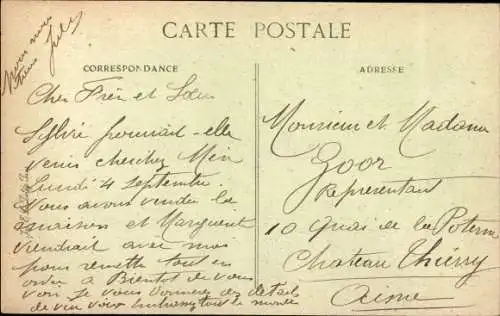 CARTE POSTALE
CORRESPONDANCE
ADRESSE
Cher Frère et Soeur
Sylvie pourrait-elle
venir chercher Mimi
Lundi 4 Septembre.
Nous avons vendu la
maison et Marguerit
viendrait avec moi
pour remettre tout en
ordre à Bientôt de vous
voir Je vous donnerai des détails
de vive voix tout le monde
Monsieur et Madame
Goor
Représentant
10 Quai de la Poterne
Chateau Thierry
Aisne